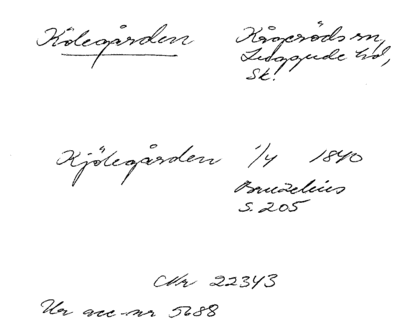 Kölegården Kågeröds sn,
Luggude hd,
Sk.
Kjölegården 1/4 1840
Bruzelius
S. 205
Nr 22343
Ur acc-nr 5688